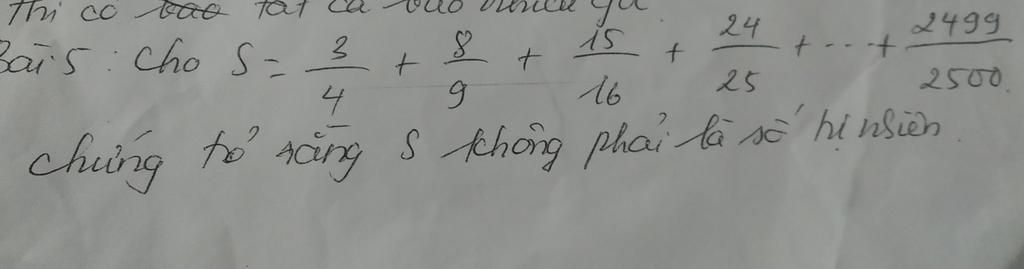 Thì có tất cả bao nhiêu
Bài 5: Cho S = 3/4 + 8/9 + 15/16 + 24/25 + ... + 2499/2500.
chứng tỏ rằng S không phải là số tự nhiên.